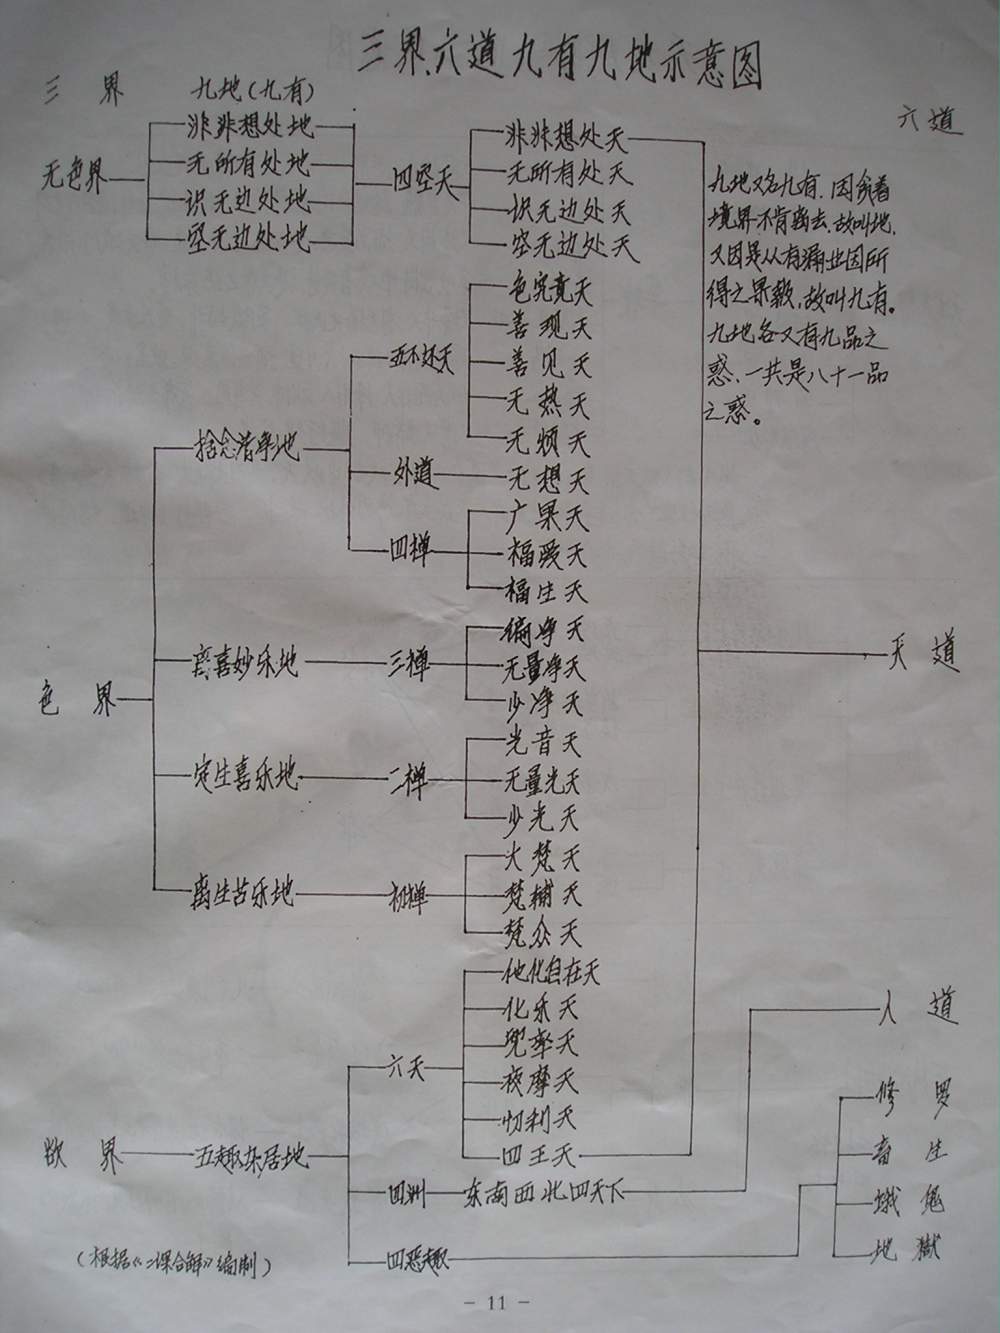 三界六道九有九地示意图
三 界
九地(九有)
六道
无色界
非非想处地
无所有处地
识无边处地
空无边处地
四空天
非非想处天
无所有处天
识无边处天
空无边处天
九地又名九有.因贪着
境界不肯离去.故叫地.
又因是从有漏业因所
得之果数.故叫九有。
九地各又有九品之
惑、一共是八十一品
之惑。
色 界
捨念清净地
五不还天
色究竟天
善现天
善见天
无热天
无烦天
外道
无想天
四禅
广果天
福爱天
福生天
喜妙乐地
三禅
徧净天
无量净天
少净天
定生喜乐地
二禅
光音天
无量光天
少光天
离生苦乐地
初禅
大梵天
梵辅天
梵众天
天 道
欲 界
五趣杂居地
六天
他化自在天
化乐天
兜率天
夜摩天
忉利天
四王天
四洲
东南西北四天下
人 道
四恶趣
修 罗
畜 生
饿 鬼
地 獄
(根据《二课合解》编制)
- 11 -